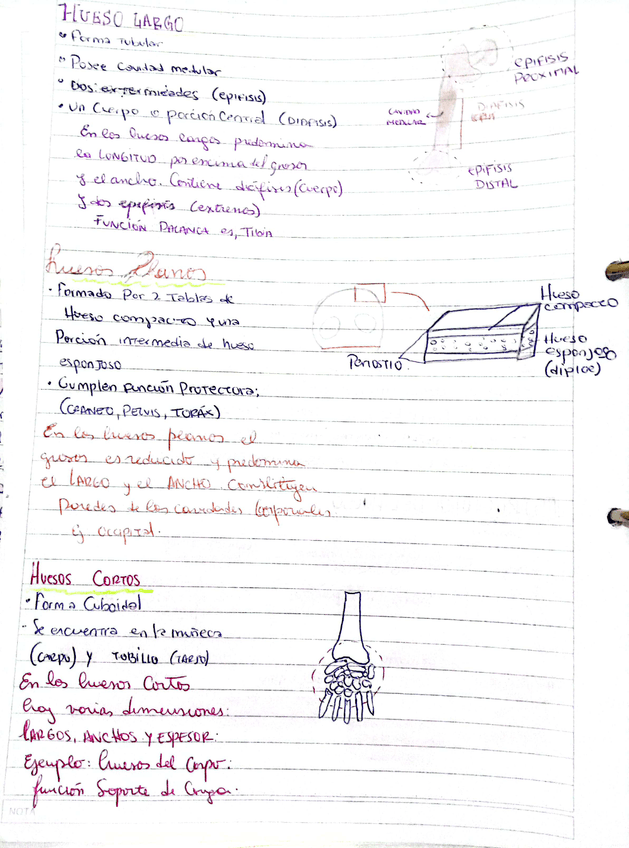 HUESO LARGO
• Forma tubular
• Posee cavidad medular
• Dos extremidades (epifisis)
• Un Cuerpo o porción Central (DIAFISIS)
En los huesos largos predomina
la LONGITUD por encima del grosor
y el ancho. Contiene diáfisis (Cuerpo)
y dos epífisis (extremos)
FUNCIÓN PALANCA ej, TIBIA
EPIFISIS
PROXIMAL
CAVIDAD
MEDULAR
DIAFISIS
EPIFISIS
DISTAL
Huesos Planos
• Formado Por 2 Tablas de
Hueso compacto y una
Porción intermedia de hueso
esponjoso
• Cumplen función Protectora;
(CRANEO, PELVIS, TORÁX)
En los huesos planos el
grosor es reducido y predomina
el LARGO y el ANCHO Constituyen
Paredes de las cavidades Corporales
ej occipital.
Hueso
compacto
Hueso
esponjoso
(diploe)
Periostio
HUESOS CORTOS
• Forma Cuboidal
• Se encuentra en la muñeca
(CARPO) y TOBILLO (TARSO)
En los huesos Cortos
hay varias dimensiones:
LARGOS, ANCHOS Y ESPESOR.
Ejemplo: huesos del Carpo.
función Soporte de
NOTA